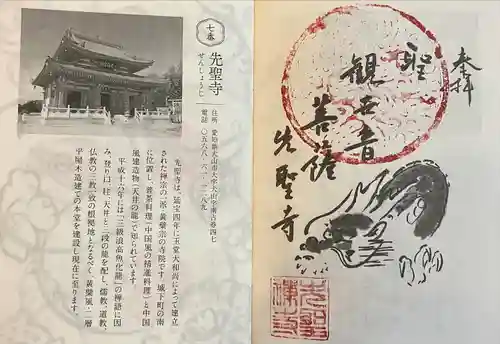 七番
先聖寺
せんしょうじ
住所 愛知県犬山市大字犬山字南古券四七
電話 〇五六八-六一-二二八九
先聖寺は、延宝四年に玉堂大和尚によって建立
された禅宗の一派・黄檗宗の寺院です。城下町の南
に位置し、普茶料理(中国風の精進料理)と中国
風建造物(天井の龍)で知られています。
平成十六年には「三級浪高魚化龍」の禅語に因
み、登り口、柱、天井と三段の龍を配し、儒教、道教、
仏教の三教一致の根拠地となるべく、黄檗風・二層
平屋木造建での本堂を建設し現在に至ります。
奉拝
聖
観世音
菩薩
先聖寺